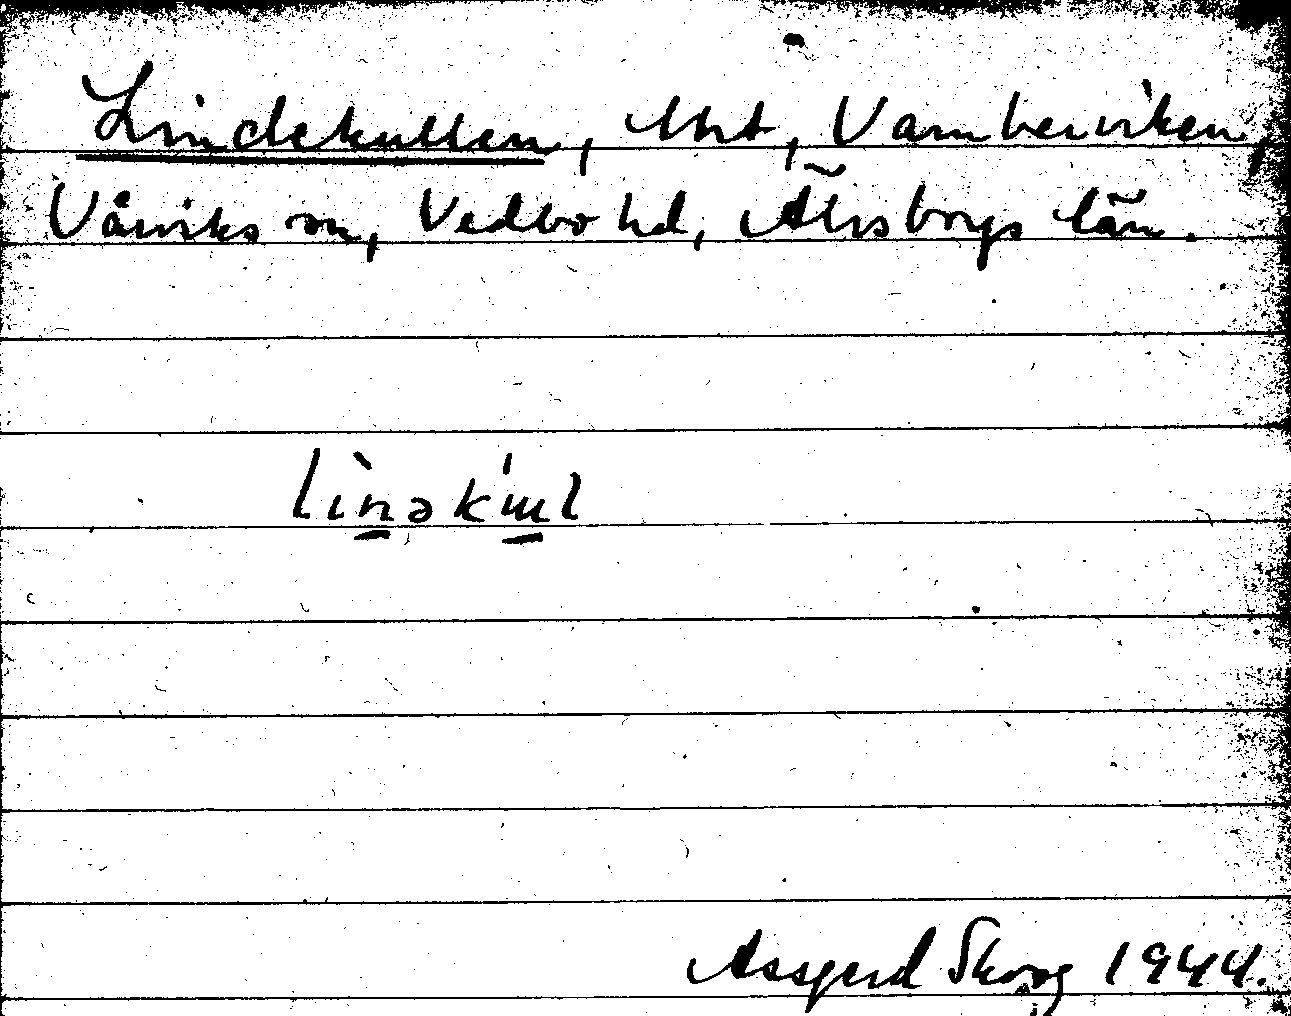 Lindekullen, lht, Vamberviken,
Vårviks sn, Vedbo hd, Älvsborgs län.
Assgerd Skoog 1944.